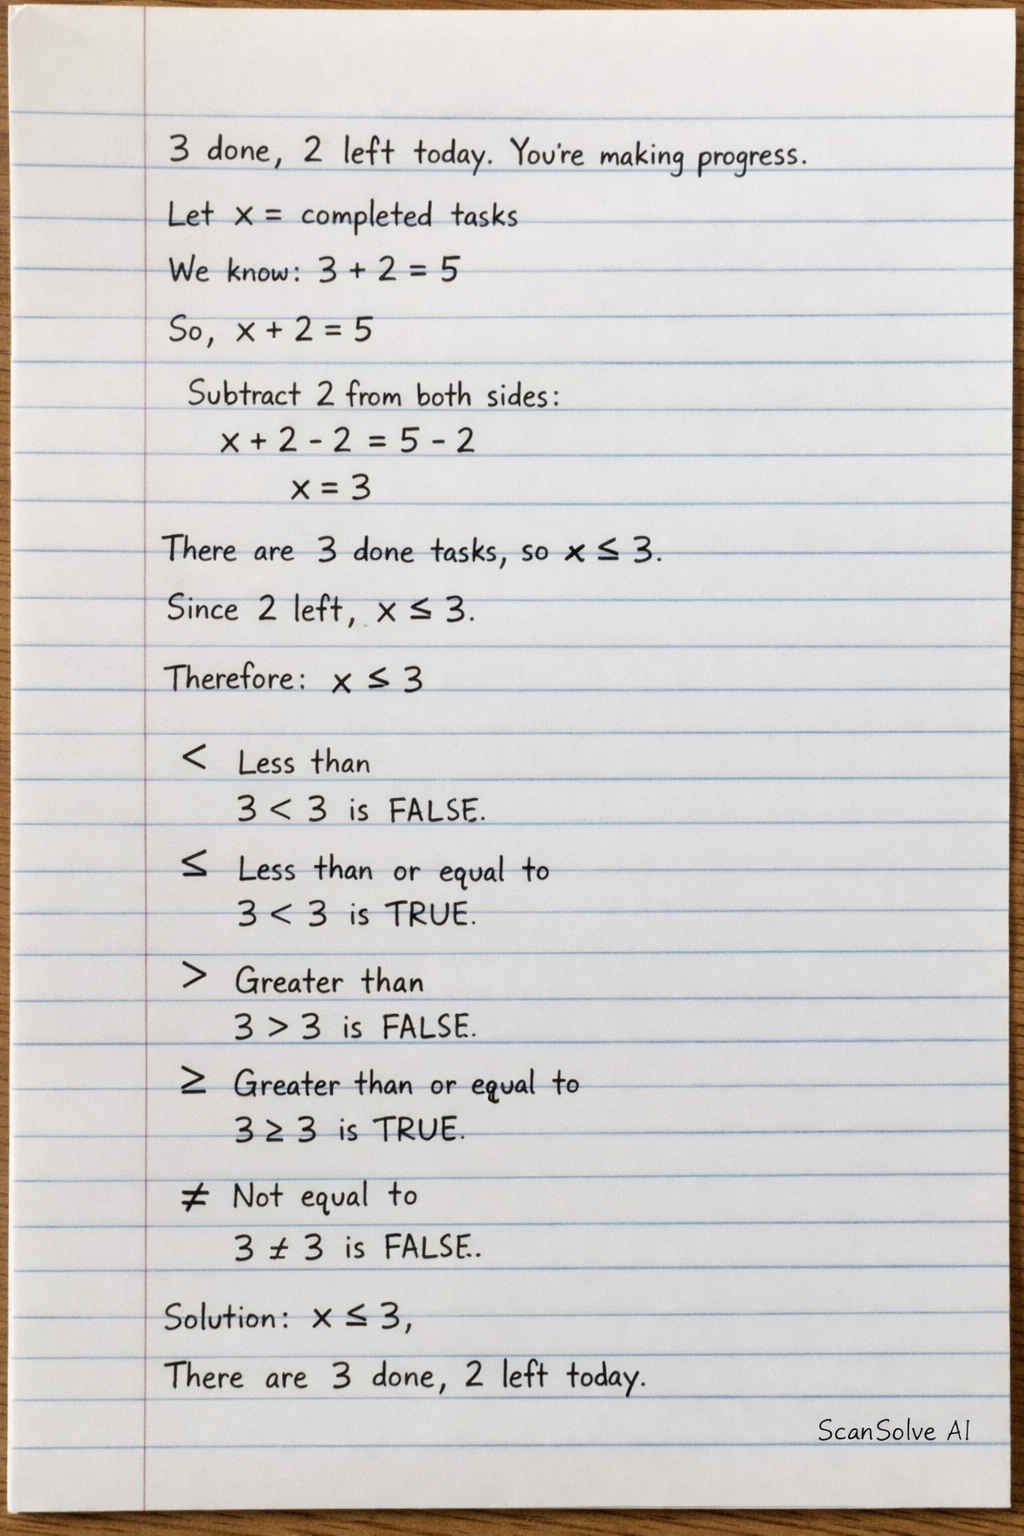 3 done, 2 left today. You're making progress.
Let x = completed tasks
We know: 3 + 2 = 5
So, x + 2 = 5
Subtract 2 from both sides:
x + 2 - 2 = 5 - 2
x = 3
There are 3 done tasks, so x ≤ 3.
Since 2 left, x ≤ 3.
Therefore: x ≤ 3
< Less than
3 < 3 is FALSE.
≤ Less than or equal to
3 < 3 is TRUE.
> Greater than
3 > 3 is FALSE.
≥ Greater than or equal to
3 ≥ 3 is TRUE.
≠ Not equal to
3 ≠ 3 is FALSE..
Solution: x ≤ 3,
There are 3 done, 2 left today.
ScanSolve AI